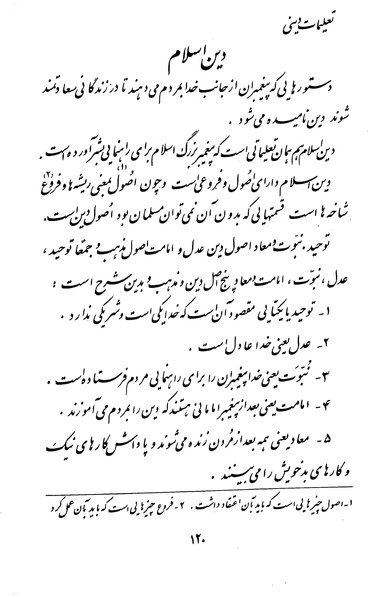 تعلیمات دینی
دین اسلام
دستورهایی که پیغمبران از جانب خدا بمردم می‌دهند تا در زندگانی سعادتمند
شوند دین نامیده می‌شود .
دین اسلام هم همان تعلیماتی است که پیغمبر بزرگ اسلام برای راهنمایی بشر آورده است .
دین اسلام دارای اصول و فروعی است و چون اصول(۱) بمعنی ریشه‌ها و فروع(۲)
شاخه‌ها است قسمتهایی که بدون آن نمی‌توان مسلمان بود اصول دین است .
توحید ، نبوّت و معاد اصول دین عدل و امامت اصول مذهب و جمعاً توحید ،
عدل ، نبوّت ، امامت و معاد پنج اصل دین و مذهب و بدین شرح است :
۱- توحید یا یکتایی مقصود آن است که خدا یکی است و شریکی ندارد .
۲- عدل یعنی خدا عادل است .
۳- نُبوّت یعنی خدا پیغمبران را برای راهنمایی مردم فرستاده است .
۴- امامت یعنی بعد از پیغمبر امامانی هستند که دین را بمردم می‌آموزند .
۵- معاد یعنی همه بعد از مُردن زنده می‌شوند و پاداش کارهای نیک
و کارهای بد خویش را می‌بینند .
۱- اصول چیزهایی است که باید بآن اعتقاد داشت . ۲- فروع چیزهایی است که باید بآن عمل کرد
۱۲۰